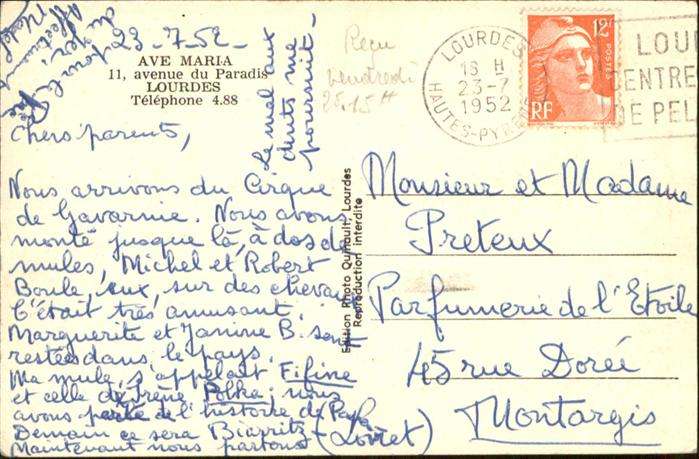 23-7-52
AVE MARIA
11, avenue du Paradis
LOURDES
Téléphone 4.88
Chers parents,
Nous arrivons du Cirque
de Gavarnie. Nous avons
monté jusque là, à dos de
mules, Michel et Robert
Boule, eux, sur des chevaux
C'était très amusant.
Marguerite et Janine B. sont
restées dans le pays.
Ma mule s'appelait Fifine
et celle de Irène Polka. nous
avons parlé de l'histoire de
Demain ce sera Biarritz
Maintenant nous partons
le mal aux
dents me
poursuit
Reçu
vendredi
25. 15H
LOURDES
18 H
23-7
1952
HAUTES-PYRÉNÉES
12F
POSTES
RF
LOU
CENTRE
DE PEL
Edition Photo Quinault, Lourdes
Reproduction interdite
Monsieur et Madame
Preteux
Parfumerie de l'Etoile
45 rue Dorée
Montargis
(Loiret)